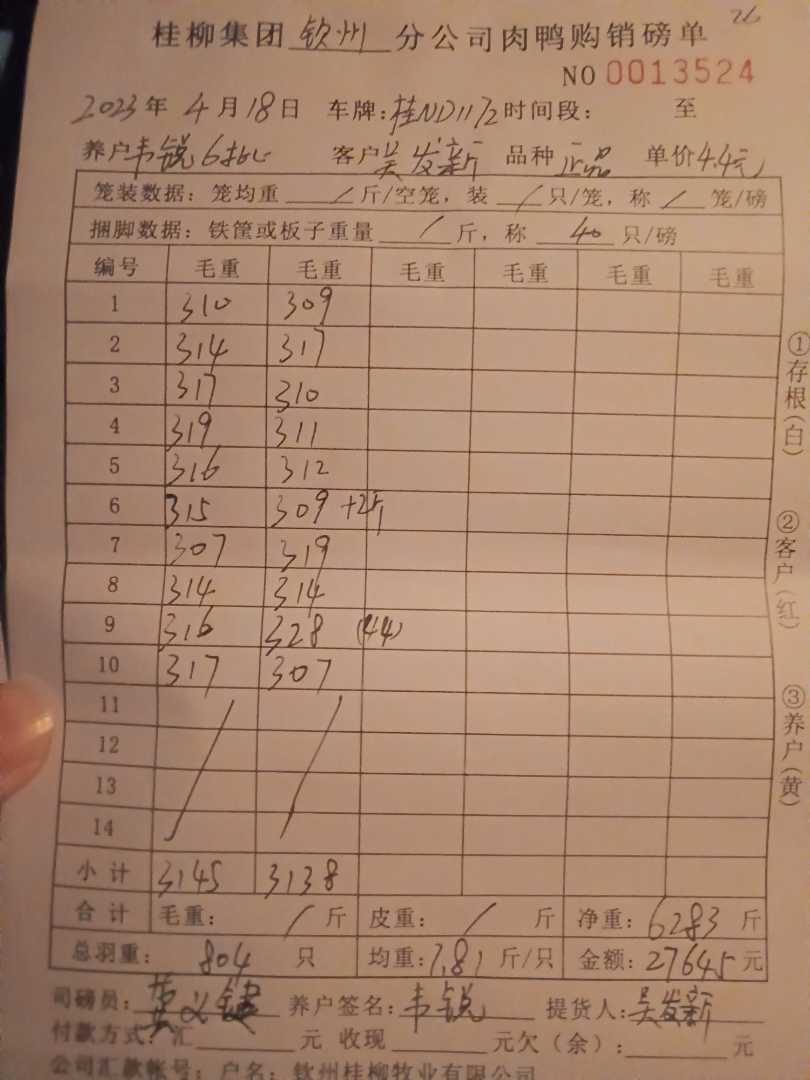 26
桂柳集团 钦州 分公司肉鸭购销磅单
NO 0013524
2023年 4月18日 车牌:桂ND1172 时间段: 至
养户 韦锐6批 客户 吴发新 品种 正品 单价4.4元
笼装数据:笼均重 / 斤/空笼,装 / 只/笼,称 / 笼/磅
捆脚数据:铁筐或板子重量 / 斤,称 40 只/磅
编号 毛重 毛重 毛重 毛重 毛重 毛重
1 310 309
2 314 317
3 317 310
4 319 311
5 316 312
6 315 309 +2斤
7 307 319
8 314 314
9 316 328 (44)
10 317 307
11
12
13
14
小计 3145 3138
合计 毛重: / 斤 皮重: / 斤 净重: 6283 斤
总羽重: 804 只 均重: 7.81 斤/只 金额: 27645 元
司磅员: 养户签名: 韦锐 提货人: 吴发新
付款方式: 汇 元 收现 元欠(余): 元
公司汇款帐号: 户名: 钦州桂柳牧业有限公司
①存根(白)
②客户(红)
③养户(黄)